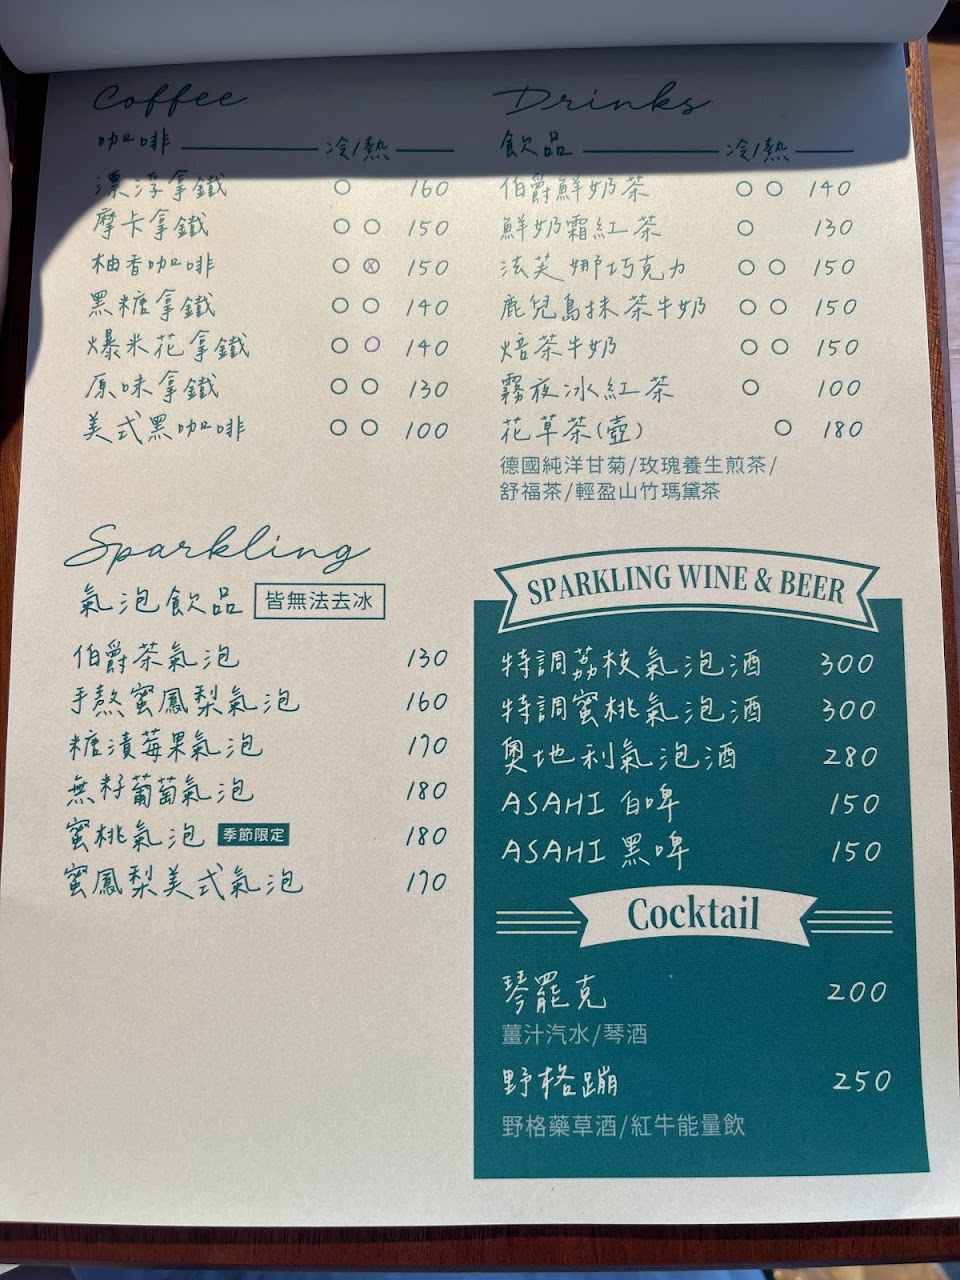 Coffee
咖啡 冷/熱
漂浮拿鐵 ○ 160
摩卡拿鐵 ○ ○ 150
柚香咖啡 ○ ⓧ 150
黑糖拿鐵 ○ ○ 140
爆米花拿鐵 ○ ○ 140
原味拿鐵 ○ ○ 130
美式黑咖啡 ○ ○ 100
Drinks
飲品 冷/熱
伯爵鮮奶茶 ○ ○ 140
鮮奶霜紅茶 ○ 130
法芙娜巧克力 ○ ○ 150
鹿兒島抹茶牛奶 ○ ○ 150
焙茶牛奶 ○ ○ 150
霧夜冰紅茶 ○ 100
花草茶(壺) ○ 180
德國純洋甘菊/玫瑰養生煎茶/
舒福茶/輕盈山竹瑪黛茶
Sparkling
氣泡飲品 皆無法去冰
伯爵茶氣泡 130
手熬蜜鳳梨氣泡 160
糖漬莓果氣泡 170
無籽葡萄氣泡 180
蜜桃氣泡 季節限定 180
蜜鳳梨美式氣泡 170
SPARKLING WINE & BEER
特調荔枝氣泡酒 300
特調蜜桃氣泡酒 300
奧地利氣泡酒 280
ASAHI 白啤 150
ASAHI 黑啤 150
Cocktail
琴罷克 200
薑汁汽水/琴酒
野格蹦 250
野格藥草酒/紅牛能量飲